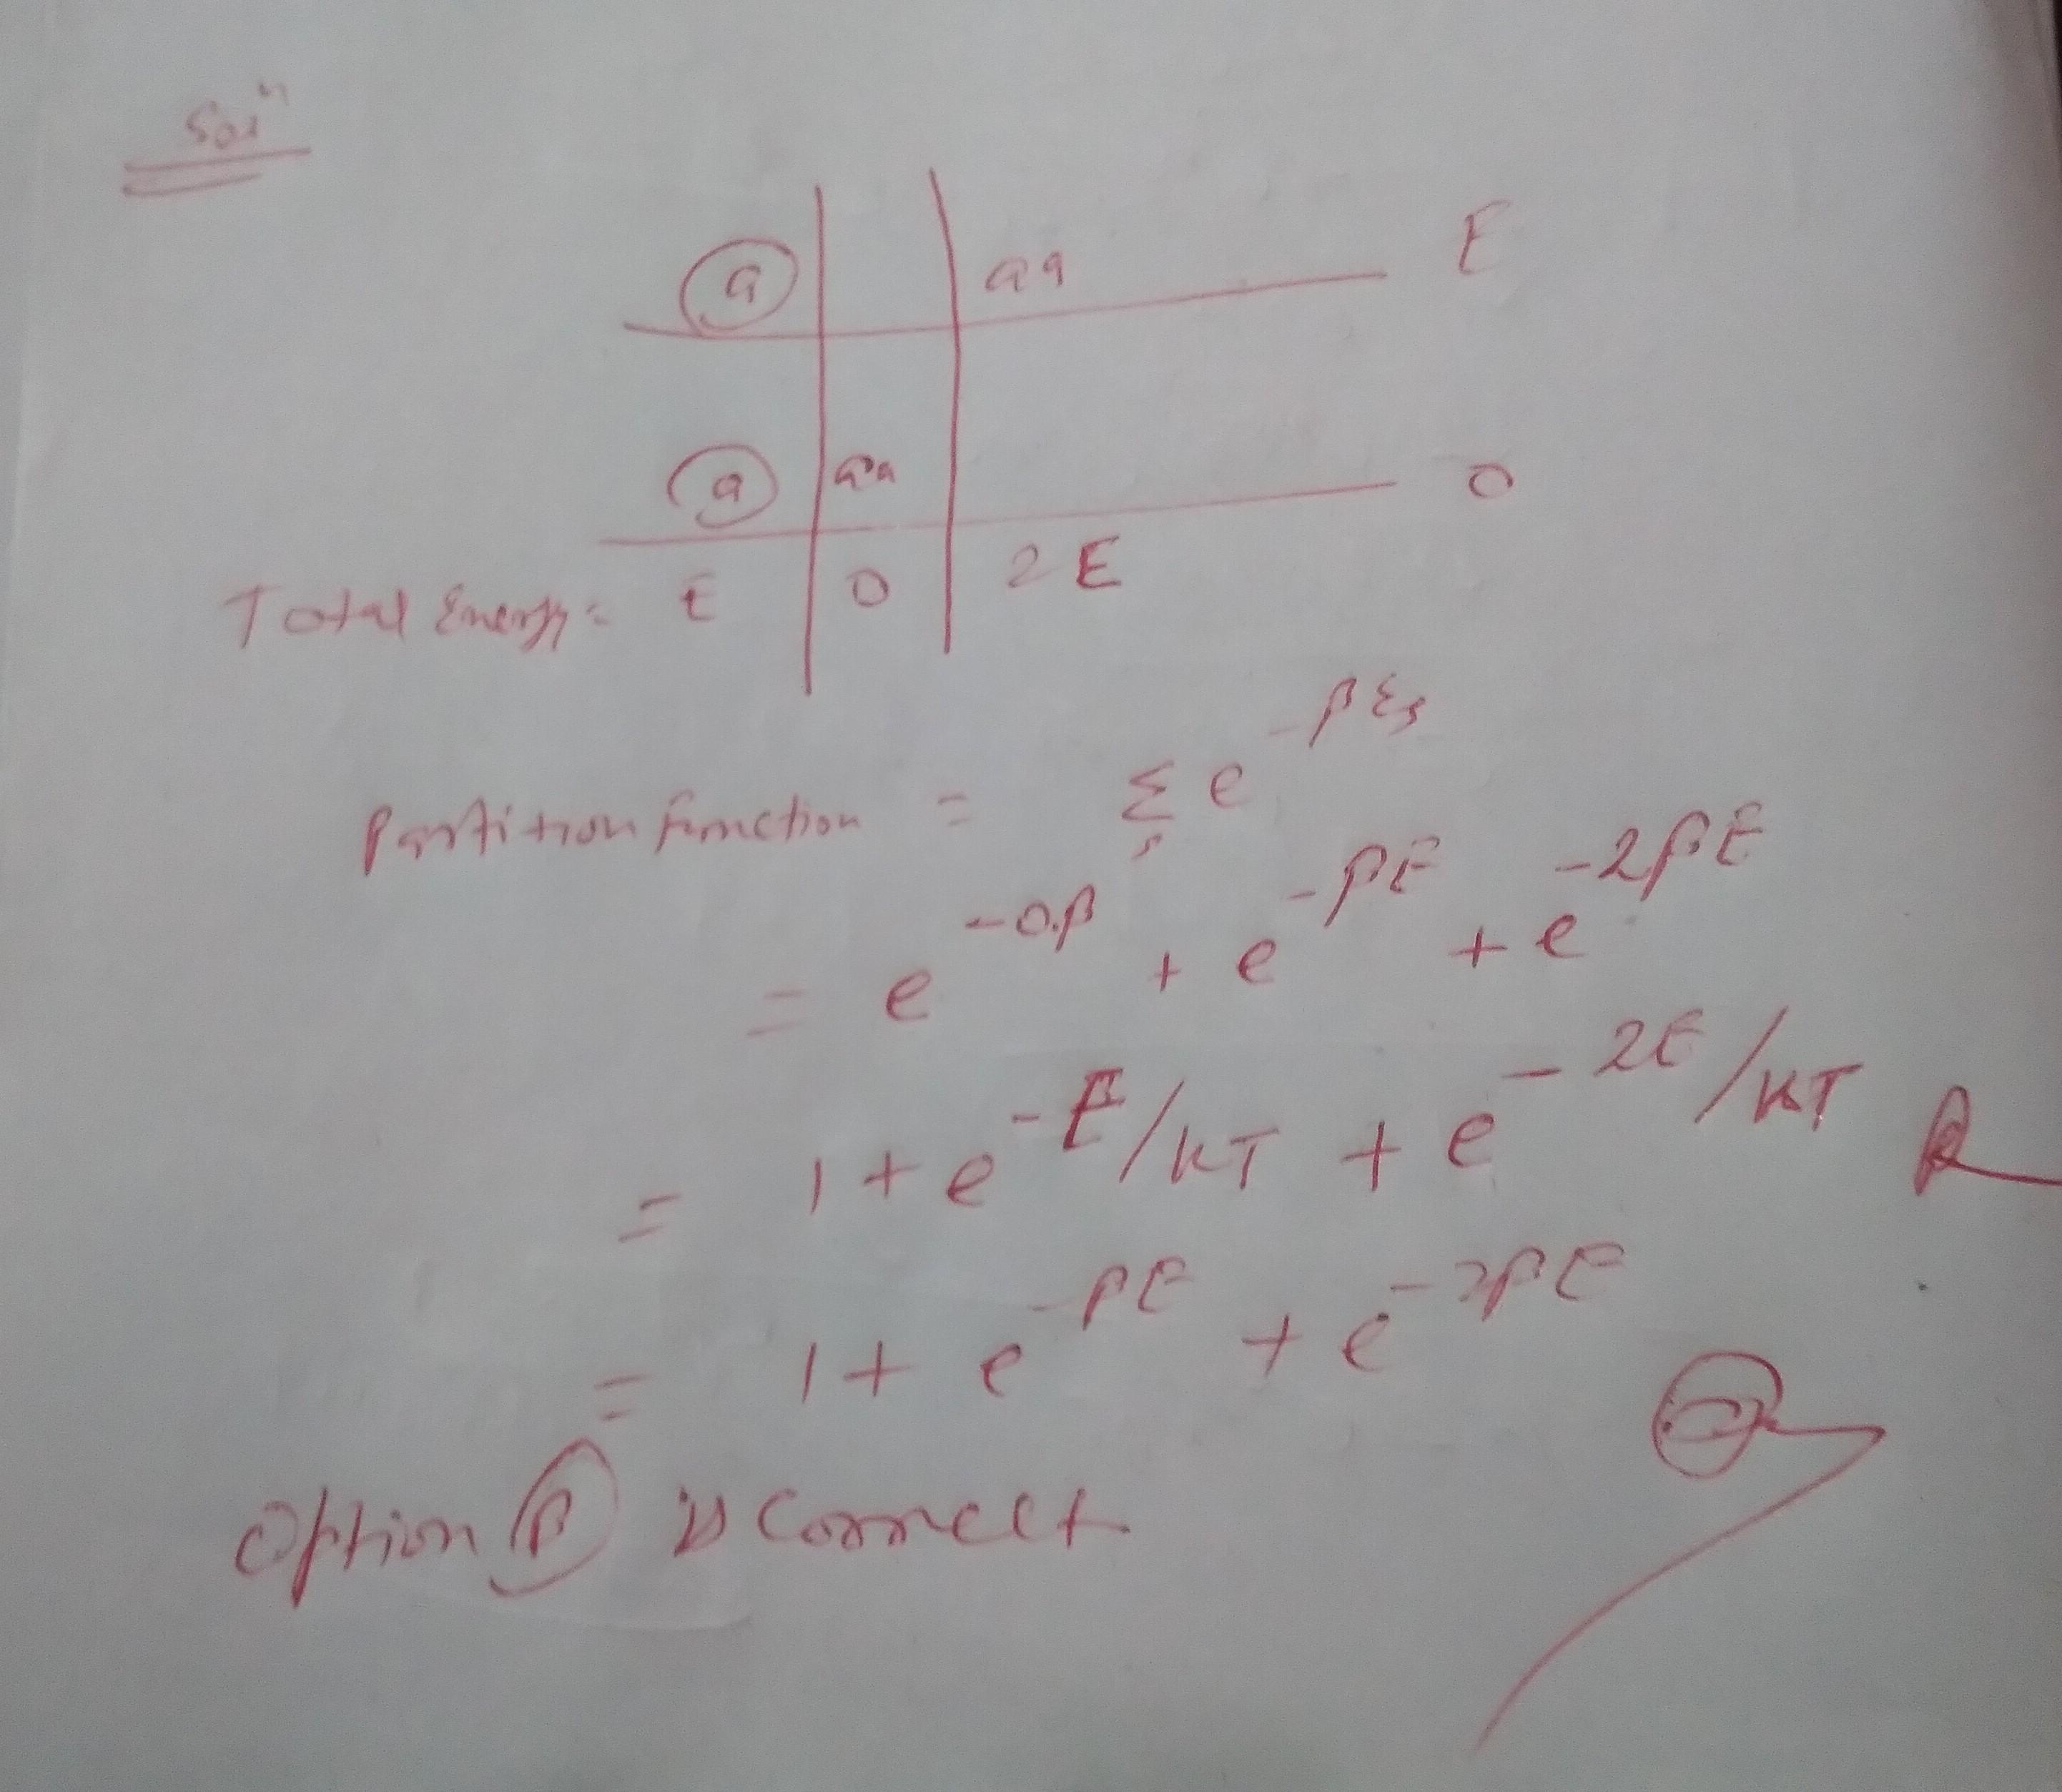 Solⁿ
a aa E
a aa 0
Total Energy = E 0 2E
Partition function = Σ_s e^{-βE_s}
= e^{-0.β} + e^{-βE} + e^{-2βE}
= 1 + e^{-E/KT} + e^{-2E/KT}
= 1 + e^{-βE} + e^{-2βE}
Option B is correct